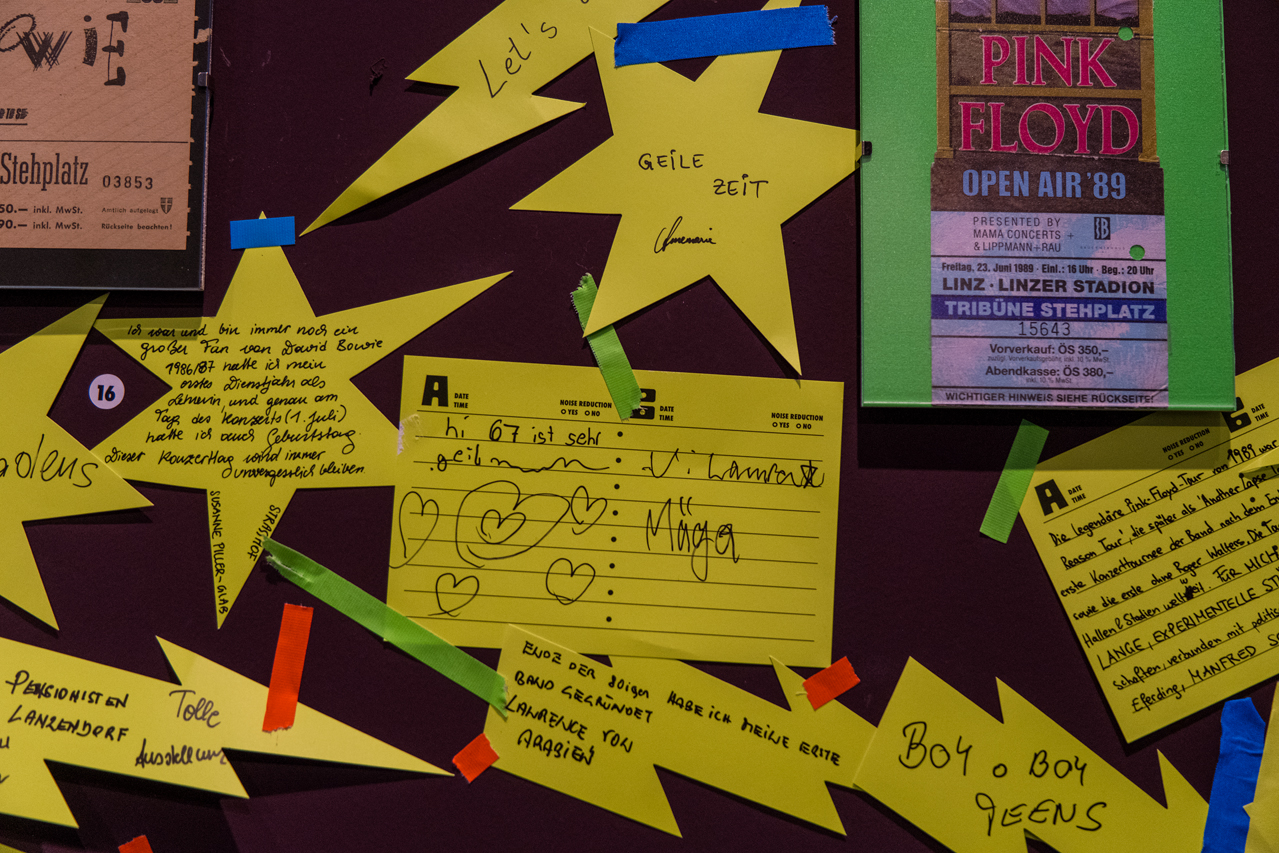 OWIE
Stehplatz 03853
50.— inkl. MwSt. Amtlich aufgelegt
90.— inkl. MwSt. Rückseite beachten!
Let's
GEILE
ZEIT
Annemarie
PINK
FLOYD
OPEN AIR '89
PRESENTED BY
MAMA CONCERTS +
& LIPPMANN+RAU
Freitag, 23. Juni 1989 · Einl.: 16 Uhr · Beg.: 20 Uhr
LINZ · LINZER STADION
TRIBÜNE STEHPLATZ
15643
Vorverkauf: ÖS 350,–
zuzügl. Vorverkaufsgebühr inkl. 10 % MwSt.
Abendkasse: ÖS 380,–
inkl. 10 % MwSt.
WICHTIGER HINWEIS SIEHE RÜCKSEITE!
16
Ich war und bin immer noch ein
großer Fan von David Bowie
1986/87 hatte ich mein
erstes Dienstjahr als
Lehrerin und genau am
Tag des Konzerts (1. Juli)
hatte ich auch Geburtstag.
Dieser Konzerttag wird immer
unvergesslich bleiben
SUSANNE PILLER-GLAB
STRASSHOF
A DATE
TIME
NOISE REDUCTION
O YES O NO
B DATE
TIME
NOISE REDUCTION
O YES O NO
hi 67 ist sehr
geil
Mäga
A DATE
TIME
NOISE REDUCTION
O YES O NO
B DATE
TIME
Die legendäre Pink-Floyd-Tour von 1989 war
Reason Tour', die später als 'Another Lapse
erste Konzerttournee der Band nach dem
sowie die erste ohne Roger Walters. Die
Hallen & Stadien weltweit. FÜR MICH
LANGE, EXPERIMENTELLE
schaften, verbunden mit
Eferding, MANFRED
PENSIONISTEN
LANZENDORF
Tolle
Ausstellung
ENDE DER 80iger HABE ICH MEINE ERSTE
BAND GEGRÜNDET
LAWRENCE VON
ARABIEN
BOY O BOY
JEENS